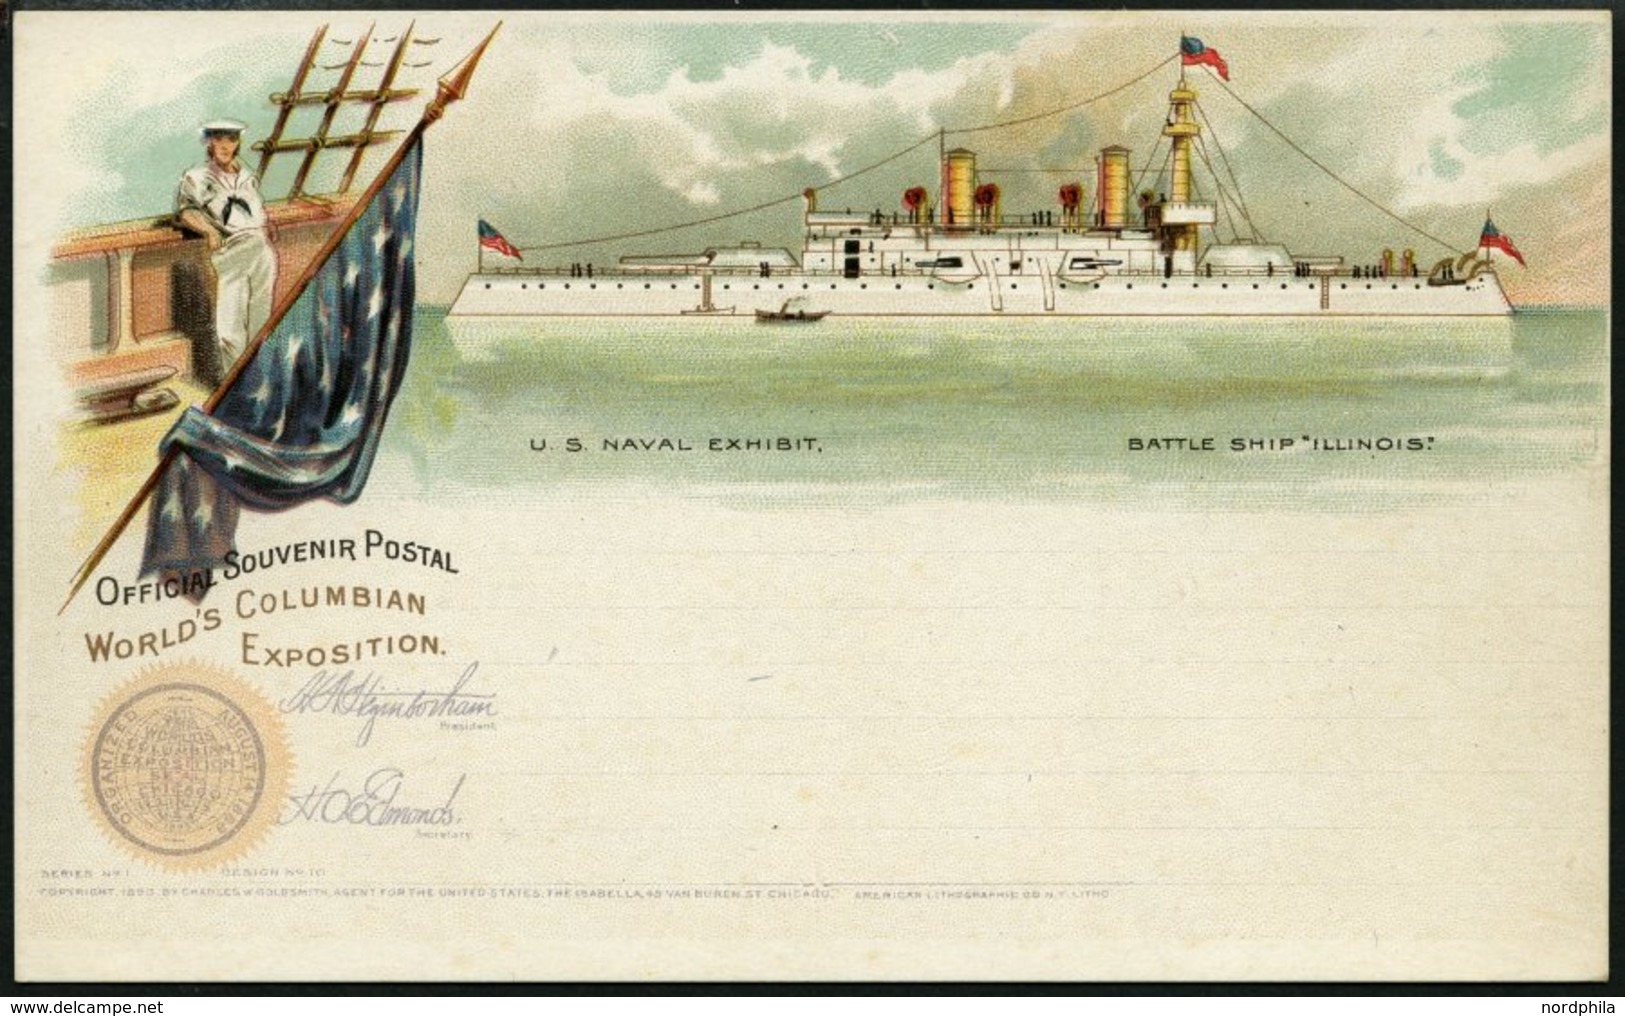 U. S. NAVAL EXHIBIT,
BATTLE SHIP "ILLINOIS."
OFFICIAL SOUVENIR POSTAL
WORLD'S COLUMBIAN
EXPOSITION.
H. N. Higinbotham
President.
ORGANIZED AUGUST 14 1889
WORLD'S
COLUMBIAN
EXPOSITION
SEAL
CHICAGO
H. O. Edmonds.
Secretary.
SERIES No 1. DESIGN No 10
COPYRIGHT, 1893, BY CHARLES W. GOLDSMITH, AGENT FOR THE UNITED STATES, THE ISABELLA, 48 VAN BUREN ST. CHICAGO. AMERICAN LITHOGRAPHIC CO N.Y. LITHO
www.delcampe.net
nordphila